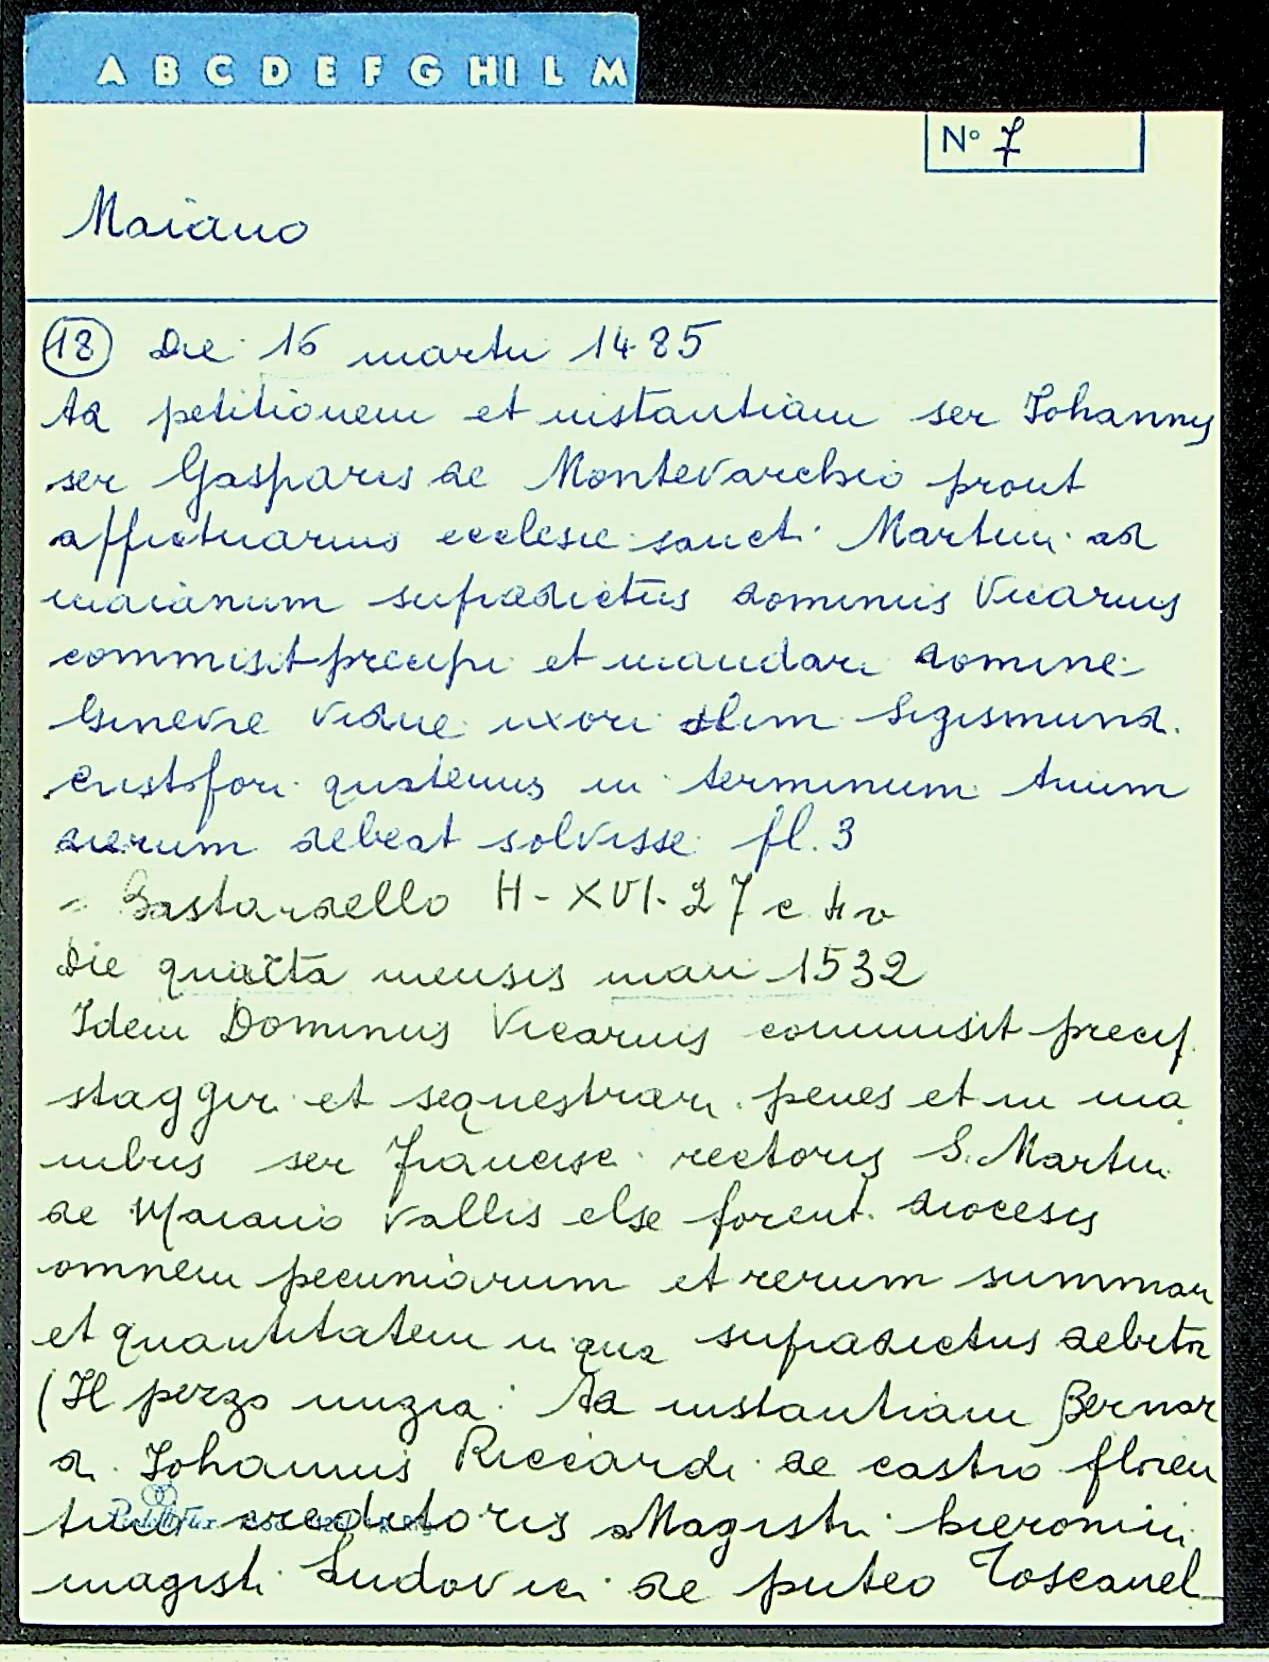 A B C D E F G HI L M
Nº 7
Maiano
18 Die 16 martii 1485
Ad petitionem et instantiam ser Iohannis
ser Gasparis de Montevarchio prout
affictuarius ecclesie sancti Martini ad
maianum supradictus dominus Vicarius
commisit precipi et mandari domine
Ginevre vidue uxori olim Sigismundi
cristofori quatenus in terminum trium
dierum debeat solvisse fl. 3
- Bastardello H-XVI-27 c
Die quarta mensis maii 1532
Idem Dominus Vicarius commisit precip.
staggiri et sequestrari penes et in ma
nibus ser francisci rectoris S. Martini
de Maiano Vallis else florent. diocesis
omnem pecuniarum et rerum summam
et quantitatem in qua supradictus debitor
(Il pezzo inizia: Ad instantiam Bernar
di Iohannis Riccardi de castro floren
tino creditoris Magistri hieronimi
magistri Ludovici de puteo Toscanel